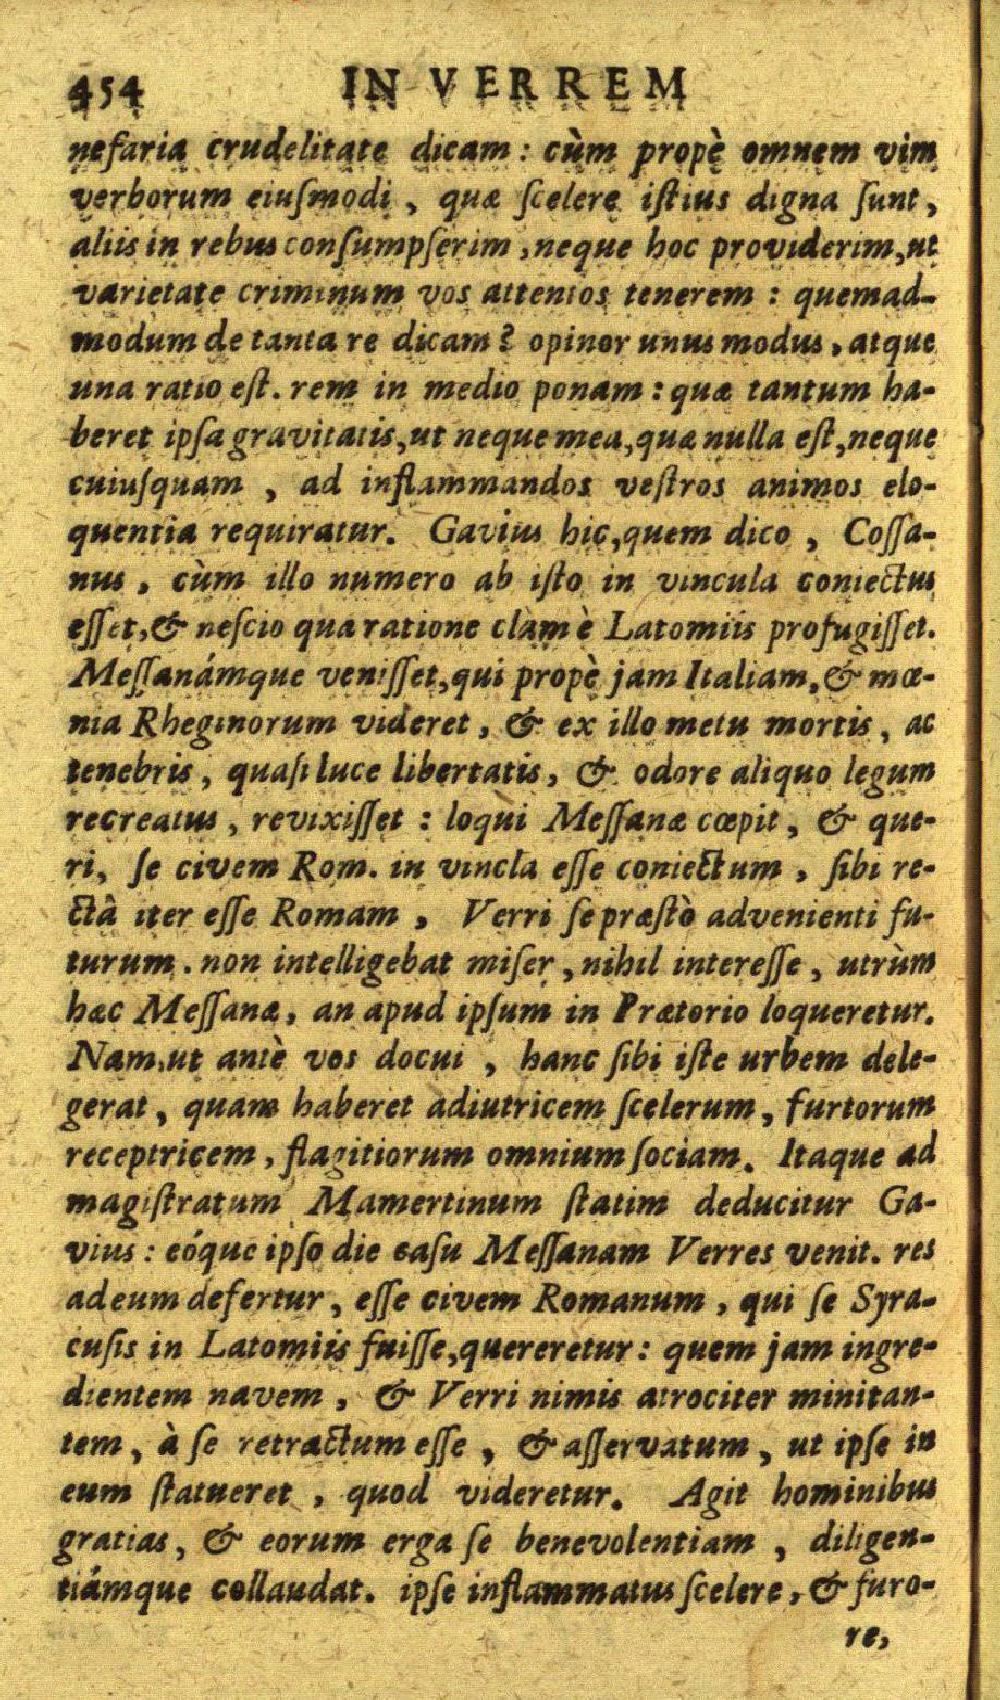 454 IN VERREM
nefaria crudelitate dicam: cùm propè omnem vim
verborum eiuſmodi, quæ ſcelere iſtius digna ſunt,
aliis in rebus conſumpſerim, neque hoc providerim, ut
varietate criminum vos attentos tenerem: quemad-
modum de tanta re dicam? opinor unus modus, atque
una ratio eſt. rem in medio ponam: quæ tantum ha-
beret ipſa gravitatis, ut neque mea, quæ nulla eſt, neque
cuiuſquam, ad inflammandos veſtros animos elo-
quentia requiratur. Gavius hic, quem dico, Coſſa-
nus, cùm illo numero ab iſto in vincula coniectus
eſſet, & neſcio qua ratione clam è Latomiis profugiſſet.
Meſſanámque veniſſet, qui propè jam Italiam, & mœ-
nia Rheginorum videret, & ex illo metu mortis, ac
tenebris, quaſi luce libertatis, & odore aliquo legum
recreatus, revixiſſet: loqui Meſſanæ cœpit, & que-
ri, ſe civem Rom. in vincla eſſe coniectum, ſibi re-
ctâ iter eſſe Romam, Verri ſe præſtò advenienti fu-
turum. non intelligebat miſer, nihil intereſſe, utrùm
hæc Meſſanæ, an apud ipſum in Prætorio loqueretur.
Nam, ut antè vos docui, hanc ſibi iſte urbem dele-
gerat, quam haberet adiutricem ſcelerum, furtorum
receptricem, flagitiorum omnium ſociam. Itaque ad
magiſtratum Mamertinum ſtatim deducitur Ga-
vius: eóque ipſo die caſu Meſſanam Verres venit. res
ad eum defertur, eſſe civem Romanum, qui ſe Syra-
cuſis in Latomiis fuiſſe, quereretur: quem jam ingre-
dientem navem, & Verri nimis atrociter minitan-
tem, à ſe retractum eſſe, & aſſervatum, ut ipſe in
eum ſtatueret, quod videretur. Agit hominibus
gratias, & eorum erga ſe benevolentiam, diligen-
tiámque collaudat. ipſe inflammatus ſcelere, & furo-
re,